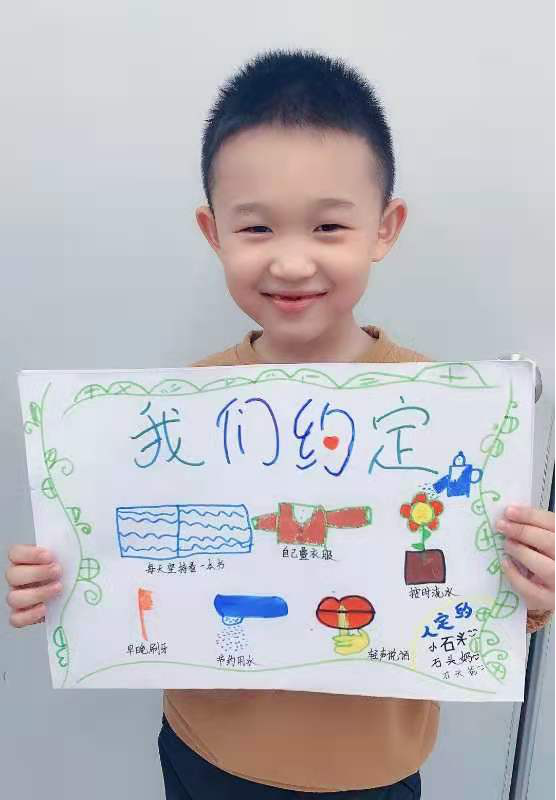 我们约定
每天坚持看一本书
自己叠衣服
按时浇水
早晚刷牙
节约用水
轻声说话
约定人
小石头
石头奶
石头爸